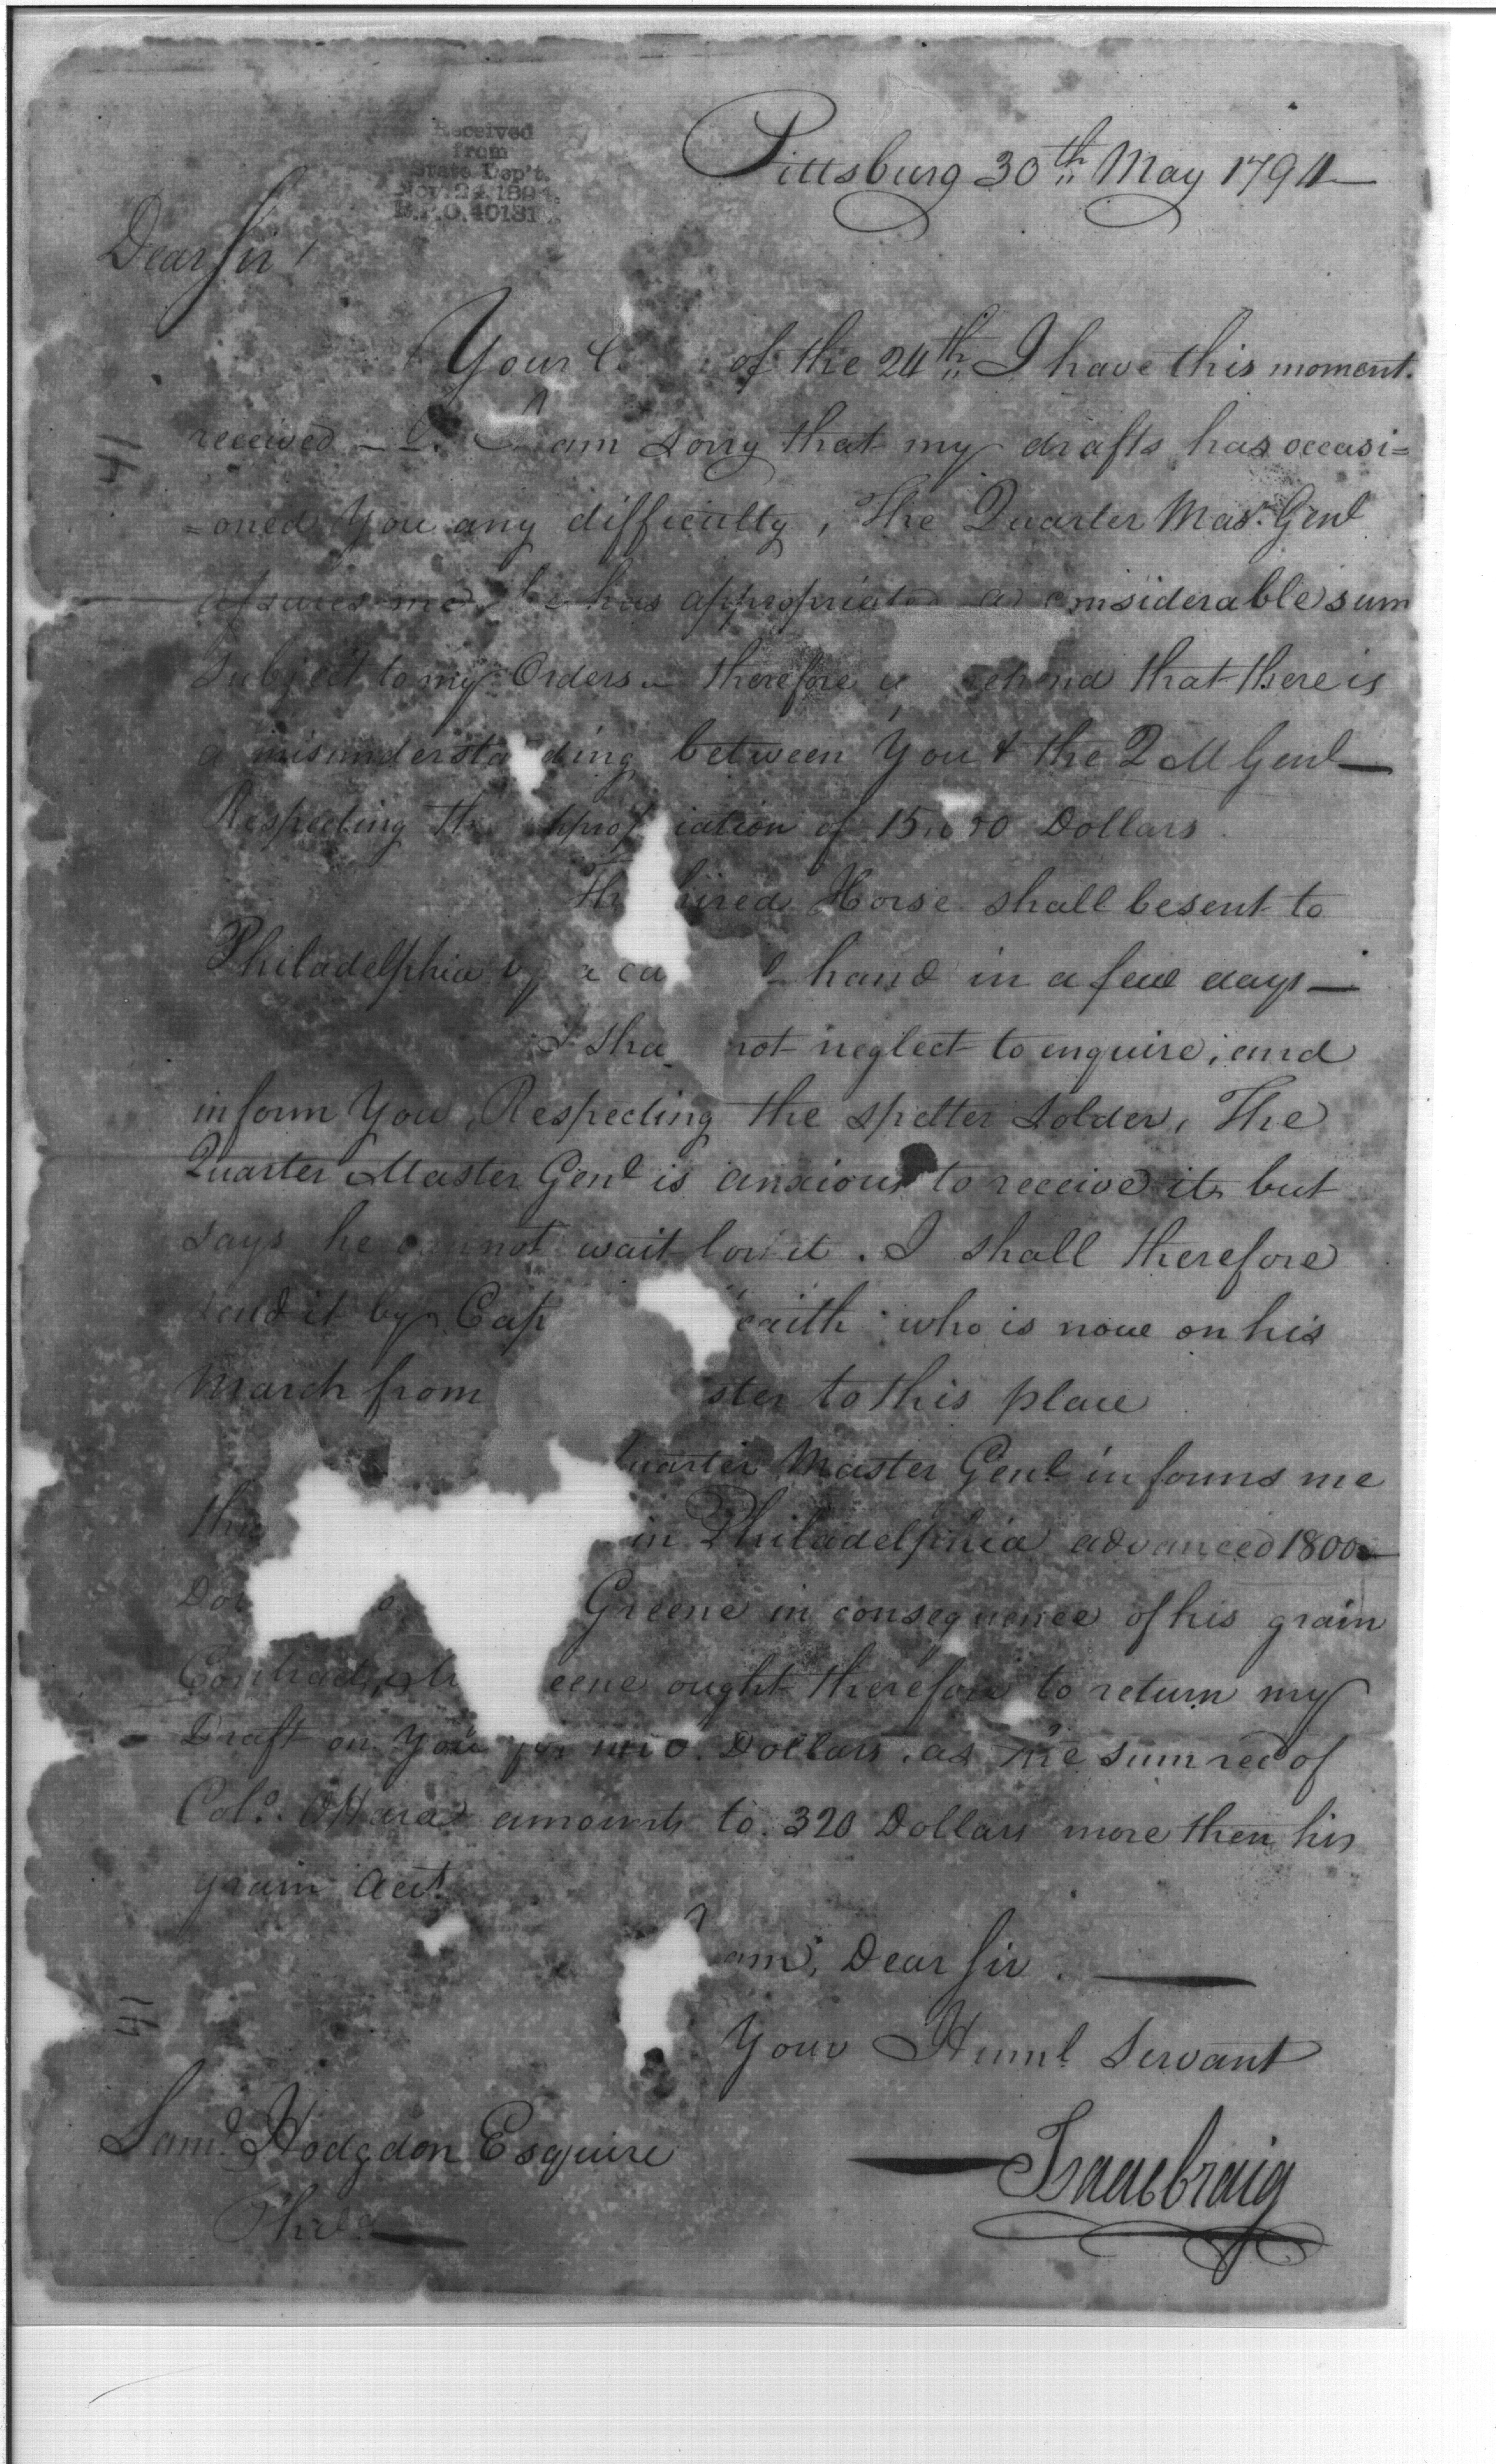 Received
from
State Dep't.
Nov. 24, 1894.
R.P.O. 40131
Pittsburg 30th May 1794
Dear Sir!
Your of the 24th I have this moment
received — am sorry that my drafts has occasi=
=oned You any difficulty, The Quarter Mas. Genl
Assures me he has appropriated a considerable sum
Subject to my Orders — therefore that there is
a misunderstanding between You & the Q M Genl —
Respecting the appropriation of Dollars
The hired Horse shall be sent to
Philadelphia by a hand in a few days —
I shall not neglect to enquire, and
inform You Respecting the spelter solder, The
Quarter Master Genl is anxious to receive it, but
says he cannot wait for it. I shall therefore
send it by who is now on his
March from to this place
Quarter Master Genl informs me
in Philadelphia advanced 1800
Greene in consequence of his grain
Contract, ought therefore to return my
Draft on You for Dollars, as the sum recd of
Colo. OHara amounts to 320 Dollars more then his
grain Acct.
I am, Dear Sir. —
Your Huml Servant
Isaac Craig
Saml Hodgdon Esquire
Philda —
41
41